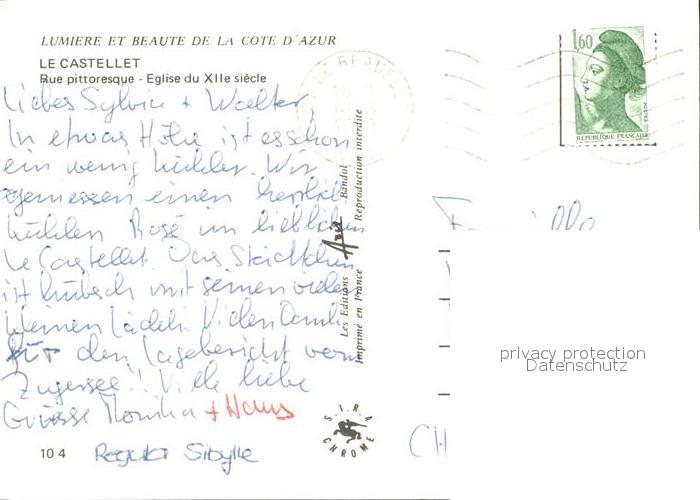 LUMIERE ET BEAUTE DE LA COTE D'AZUR
LE CASTELLET
Rue pittoresque - Eglise du XIIe siècle
Liebes Sylvia + Walter,
In etwas Höhe ist es schon
ein wenig kühler. Wir
geniessen einen herrlich
kühlen Rosé im lieblichen
Le Castellet. Das Städtchen
ist hübsch mit seinen vielen
kleinen Lädeli. Vielen Dank
für den Lagebericht vom
Zugersee!! Viele liebe
Grüsse Monika + Hans
Regula Sibylle
10 4
Les Editions Azir Bandol
Imprimé en France Reproduction interdite
S.I.R.A.
CHROME
LE BEAUSSET
1,60
POSTES
REPUBLIQUE FRANÇAISE
Famille
CH
privacy protection
Datenschutz